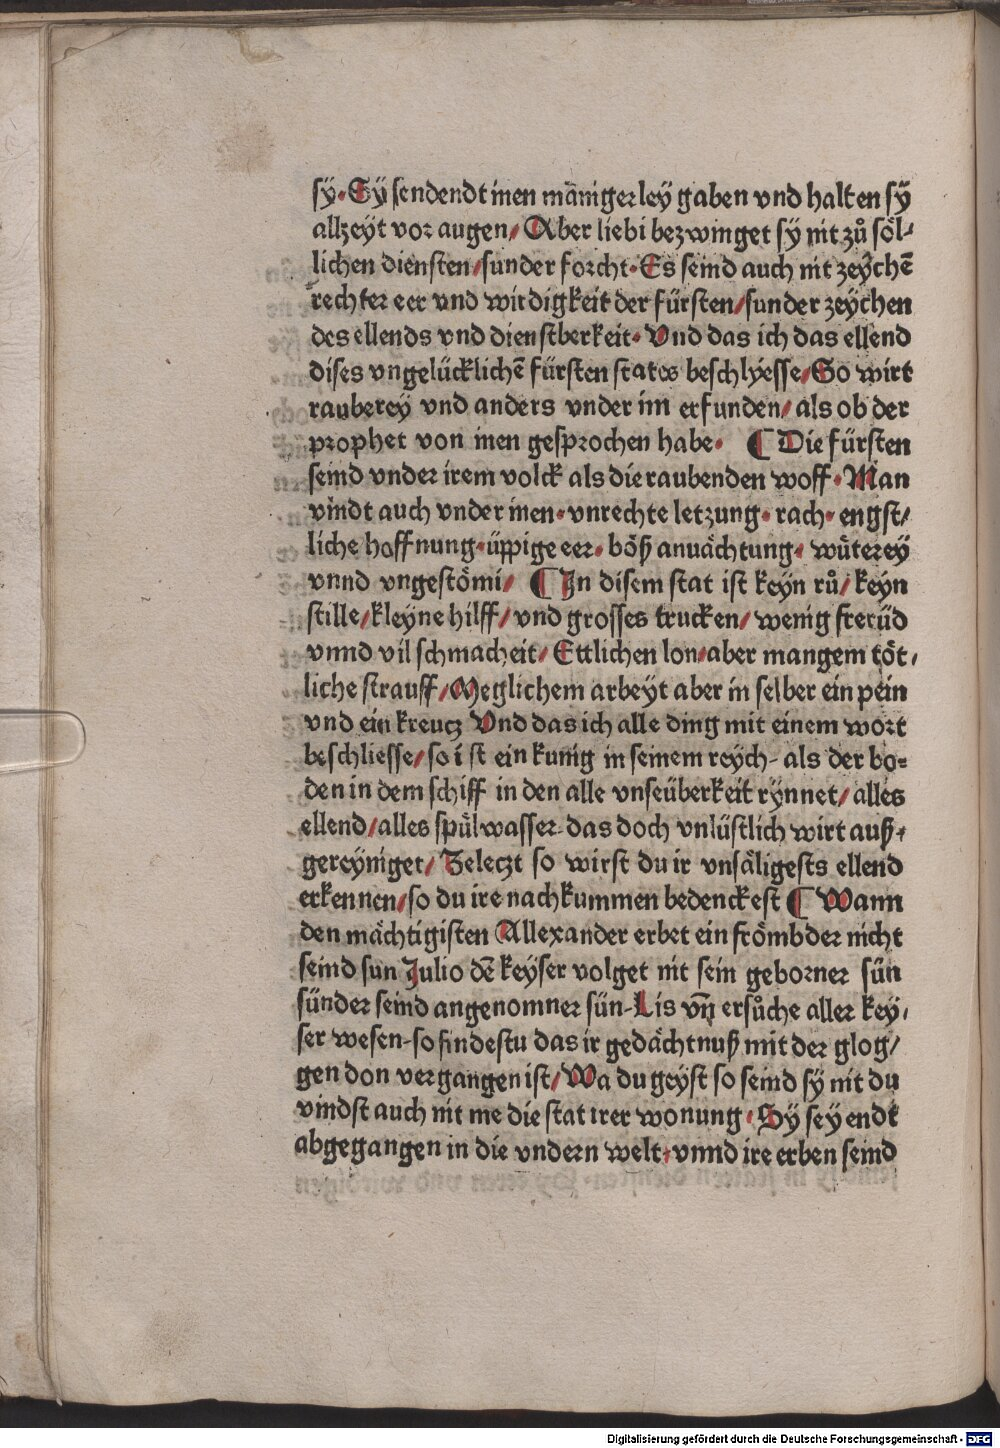 sÿ·Sÿ sendendt inen mānigerleÿ gaben vnd halten sȳ
allzeÿt vor augen/ Aber liebi bezwinget sÿ nit zů söl⸗
lichen diensten/sunder forcht·Es seind auch nit zeÿchē
rechter eer vnd wirdigkeit der fürsten/sunder zeÿchen
des ellends vnd dienstberkeit· Vnd das ich das ellend
dises vngelücklichē fürsten states beschlÿesse/So wirt
rauberey vnd anders vnder im erfunden/ als ob der
prophet von inen gesprochen habe· ¶ Die fürsten
seind vnder irem volck als die raubenden woff·Man
vindt auch vnder inen·vnrechte letzung·rach·engst/
liche hoffnung·üppige eer·böß anuächtung· wüterey
vnnd vngestömi/ ¶ In disem stat ist keÿn rů/ keÿn
stille/kleÿne hilff/ vnd grosses trucken/ wenig freüd
vnnd vil schmacheit/ Ettlichen lon/aber mangem töt/
liche strauff/Meglichem arbeÿt aber in selber ein pein
vnd ein kreutz Vnd das ich alle ding mit einem wort
beschliesse/so i st ein kunig in seinem reÿch- als der bo⸗
den in dem schiff in den alle vnseüberkeit rÿnnet/ alles
ellend/alles spülwasser-das doch vnlüstlich wirt auß⸗
gereÿniget/ Zeletzt so wirst du ir vnsäligests ellend
erkennen/so du ire nachkummen bedenckest ¶ Wann
den mächtigisten Allexander erbet ein frömbder nicht
seind sun Julio dē keÿser volget nit sein geborner sün
sünder seind angenomner sün-Lis vn̄ ersůche aller key/
ser wesen-so findestu das ir gedächtnuß mit der glog/
gen don vergangen ist/ Wa du geÿst so seind sÿ nit du
vindst auch nit me die stat irer wonung/Sÿ seÿ endt
abgegangen in die vndern welt/vnnd ire erben seind
Digitalisierung gefördert durch die Deutsche Forschungsgemeinschaft - DFG